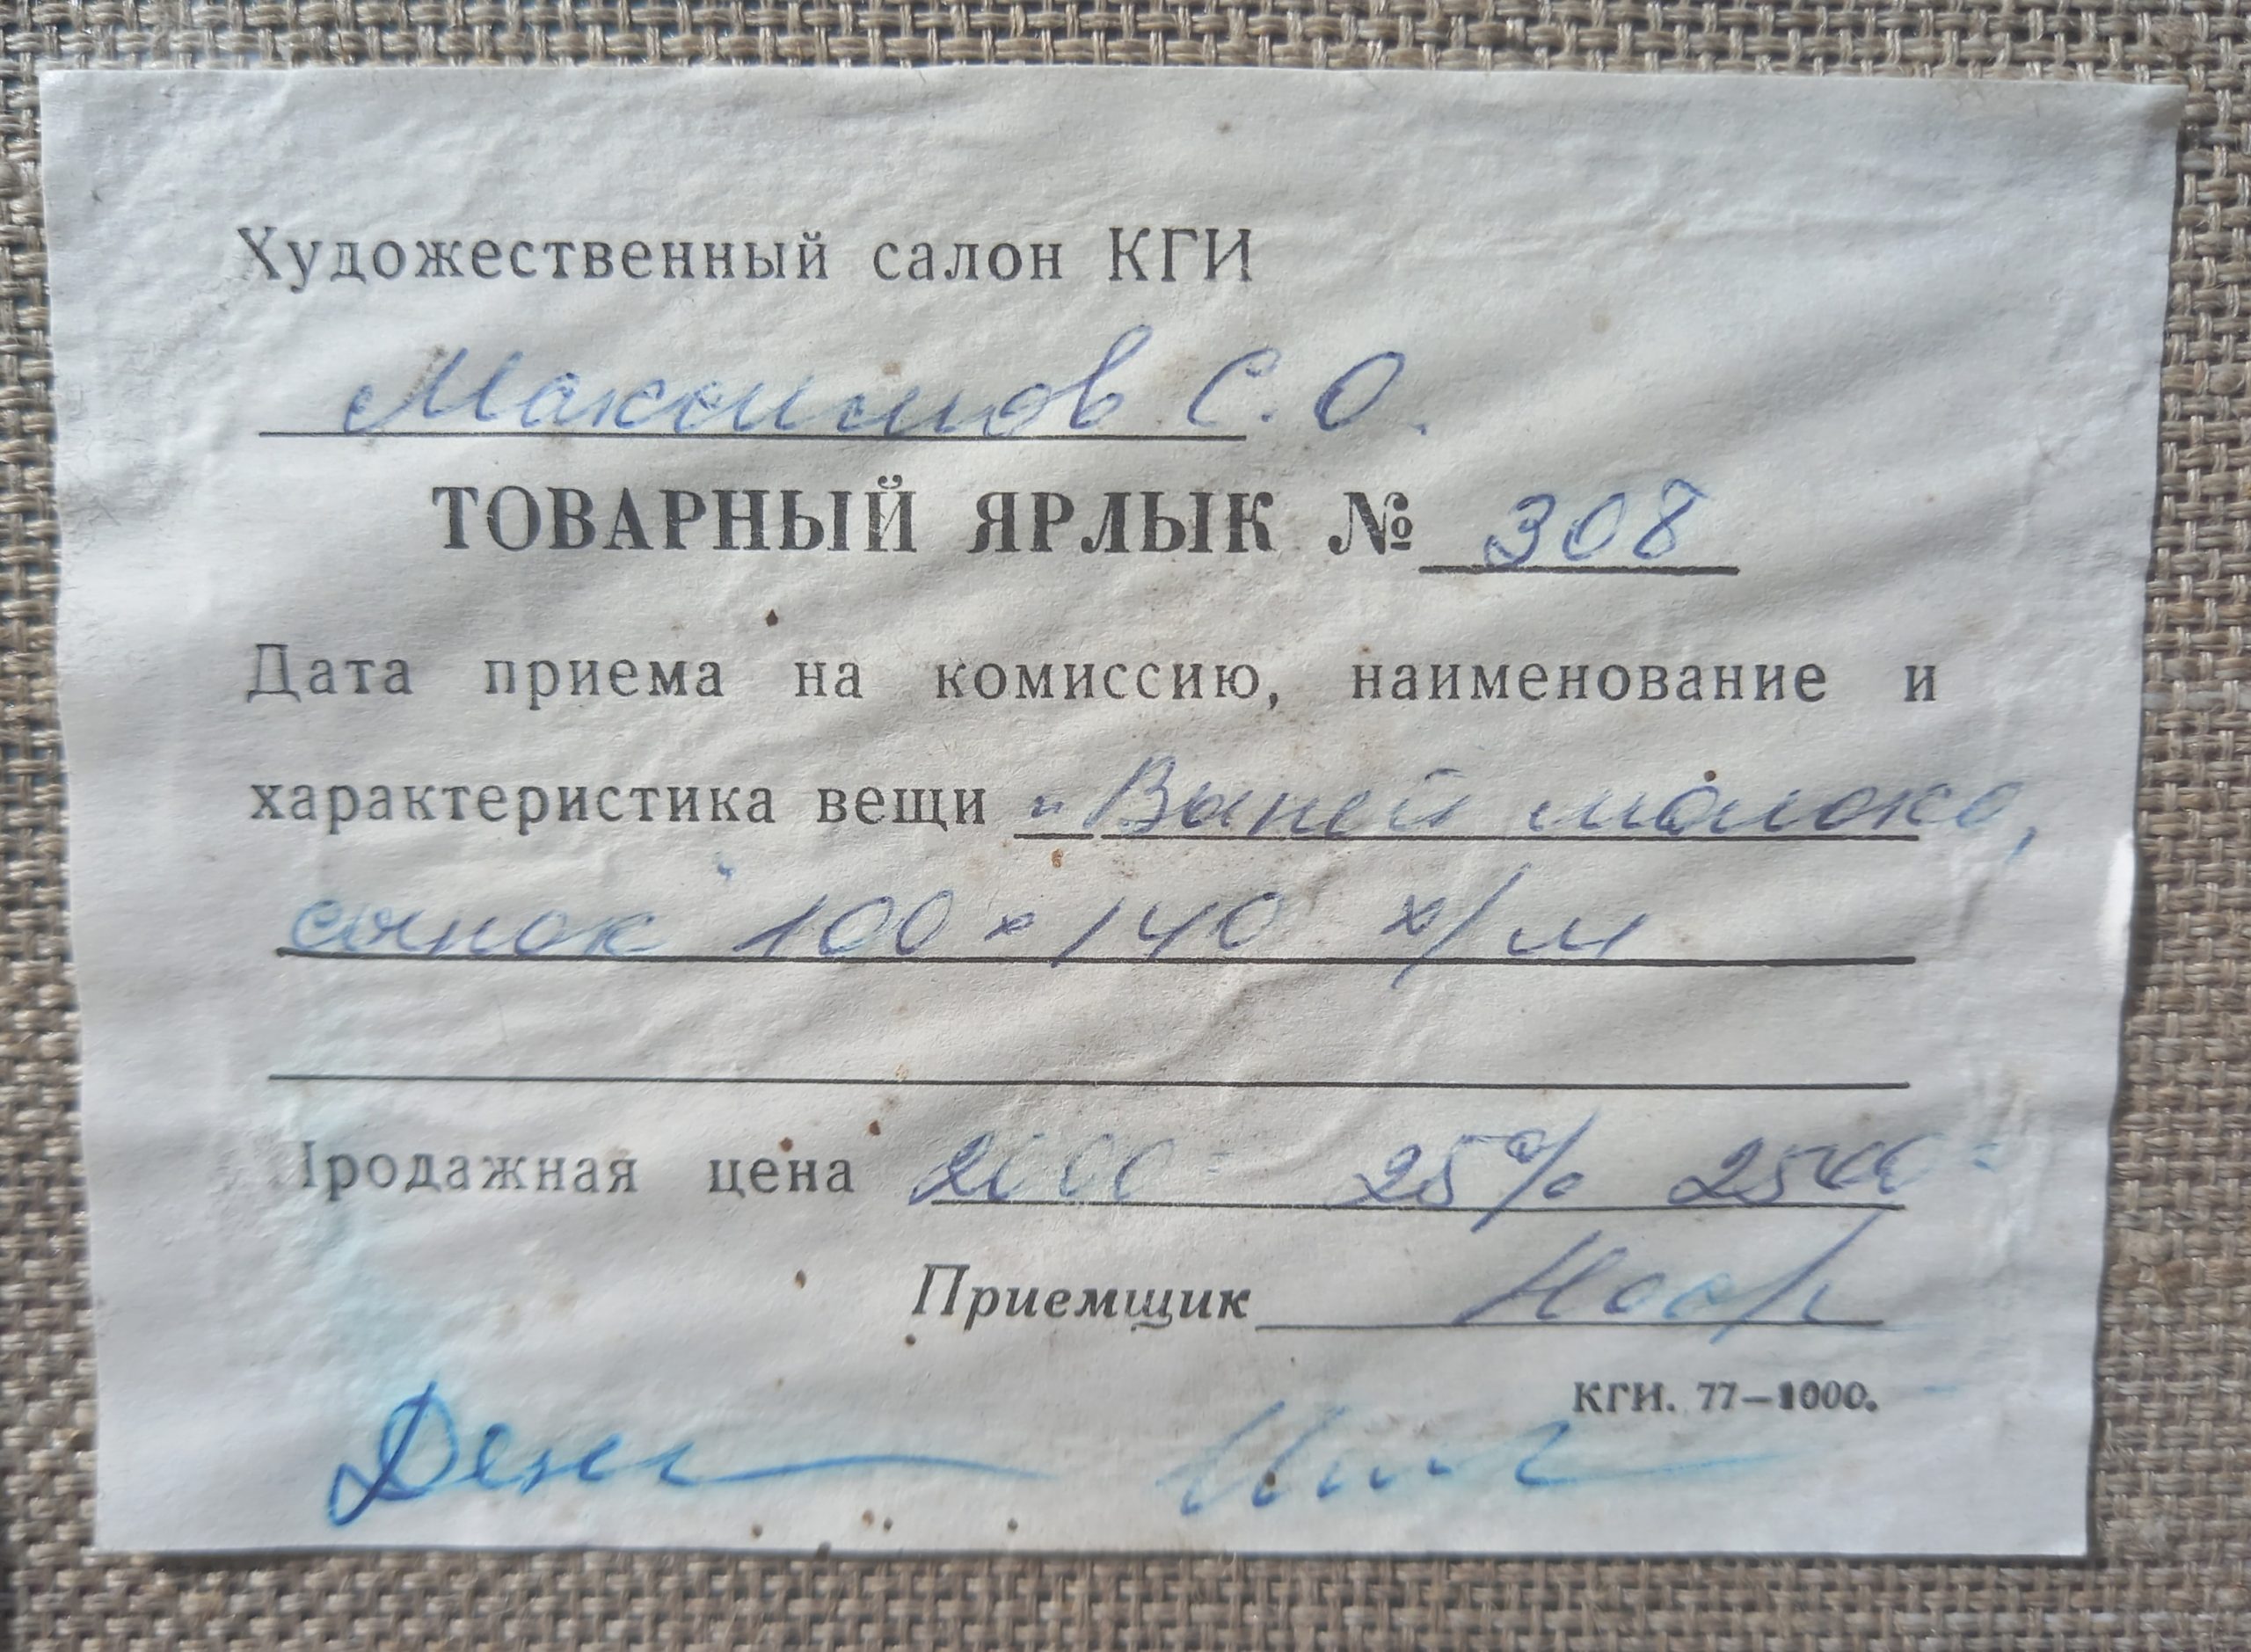 Художественный салон КГИ
Максимов С. О.
ТОВАРНЫЙ ЯРЛЫК № 308
Дата приема на комиссию, наименование и
характеристика вещи "Выпей молоко,
сынок" 100 × 140 х/м
Продажная цена 2000= 25% 2500=
Приемщик
КГИ. 77—1000.